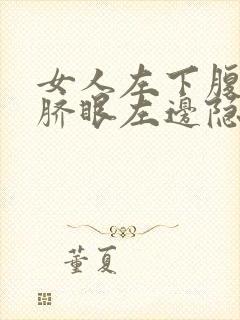 女人左下腹
脐眼左邊隐
董夏